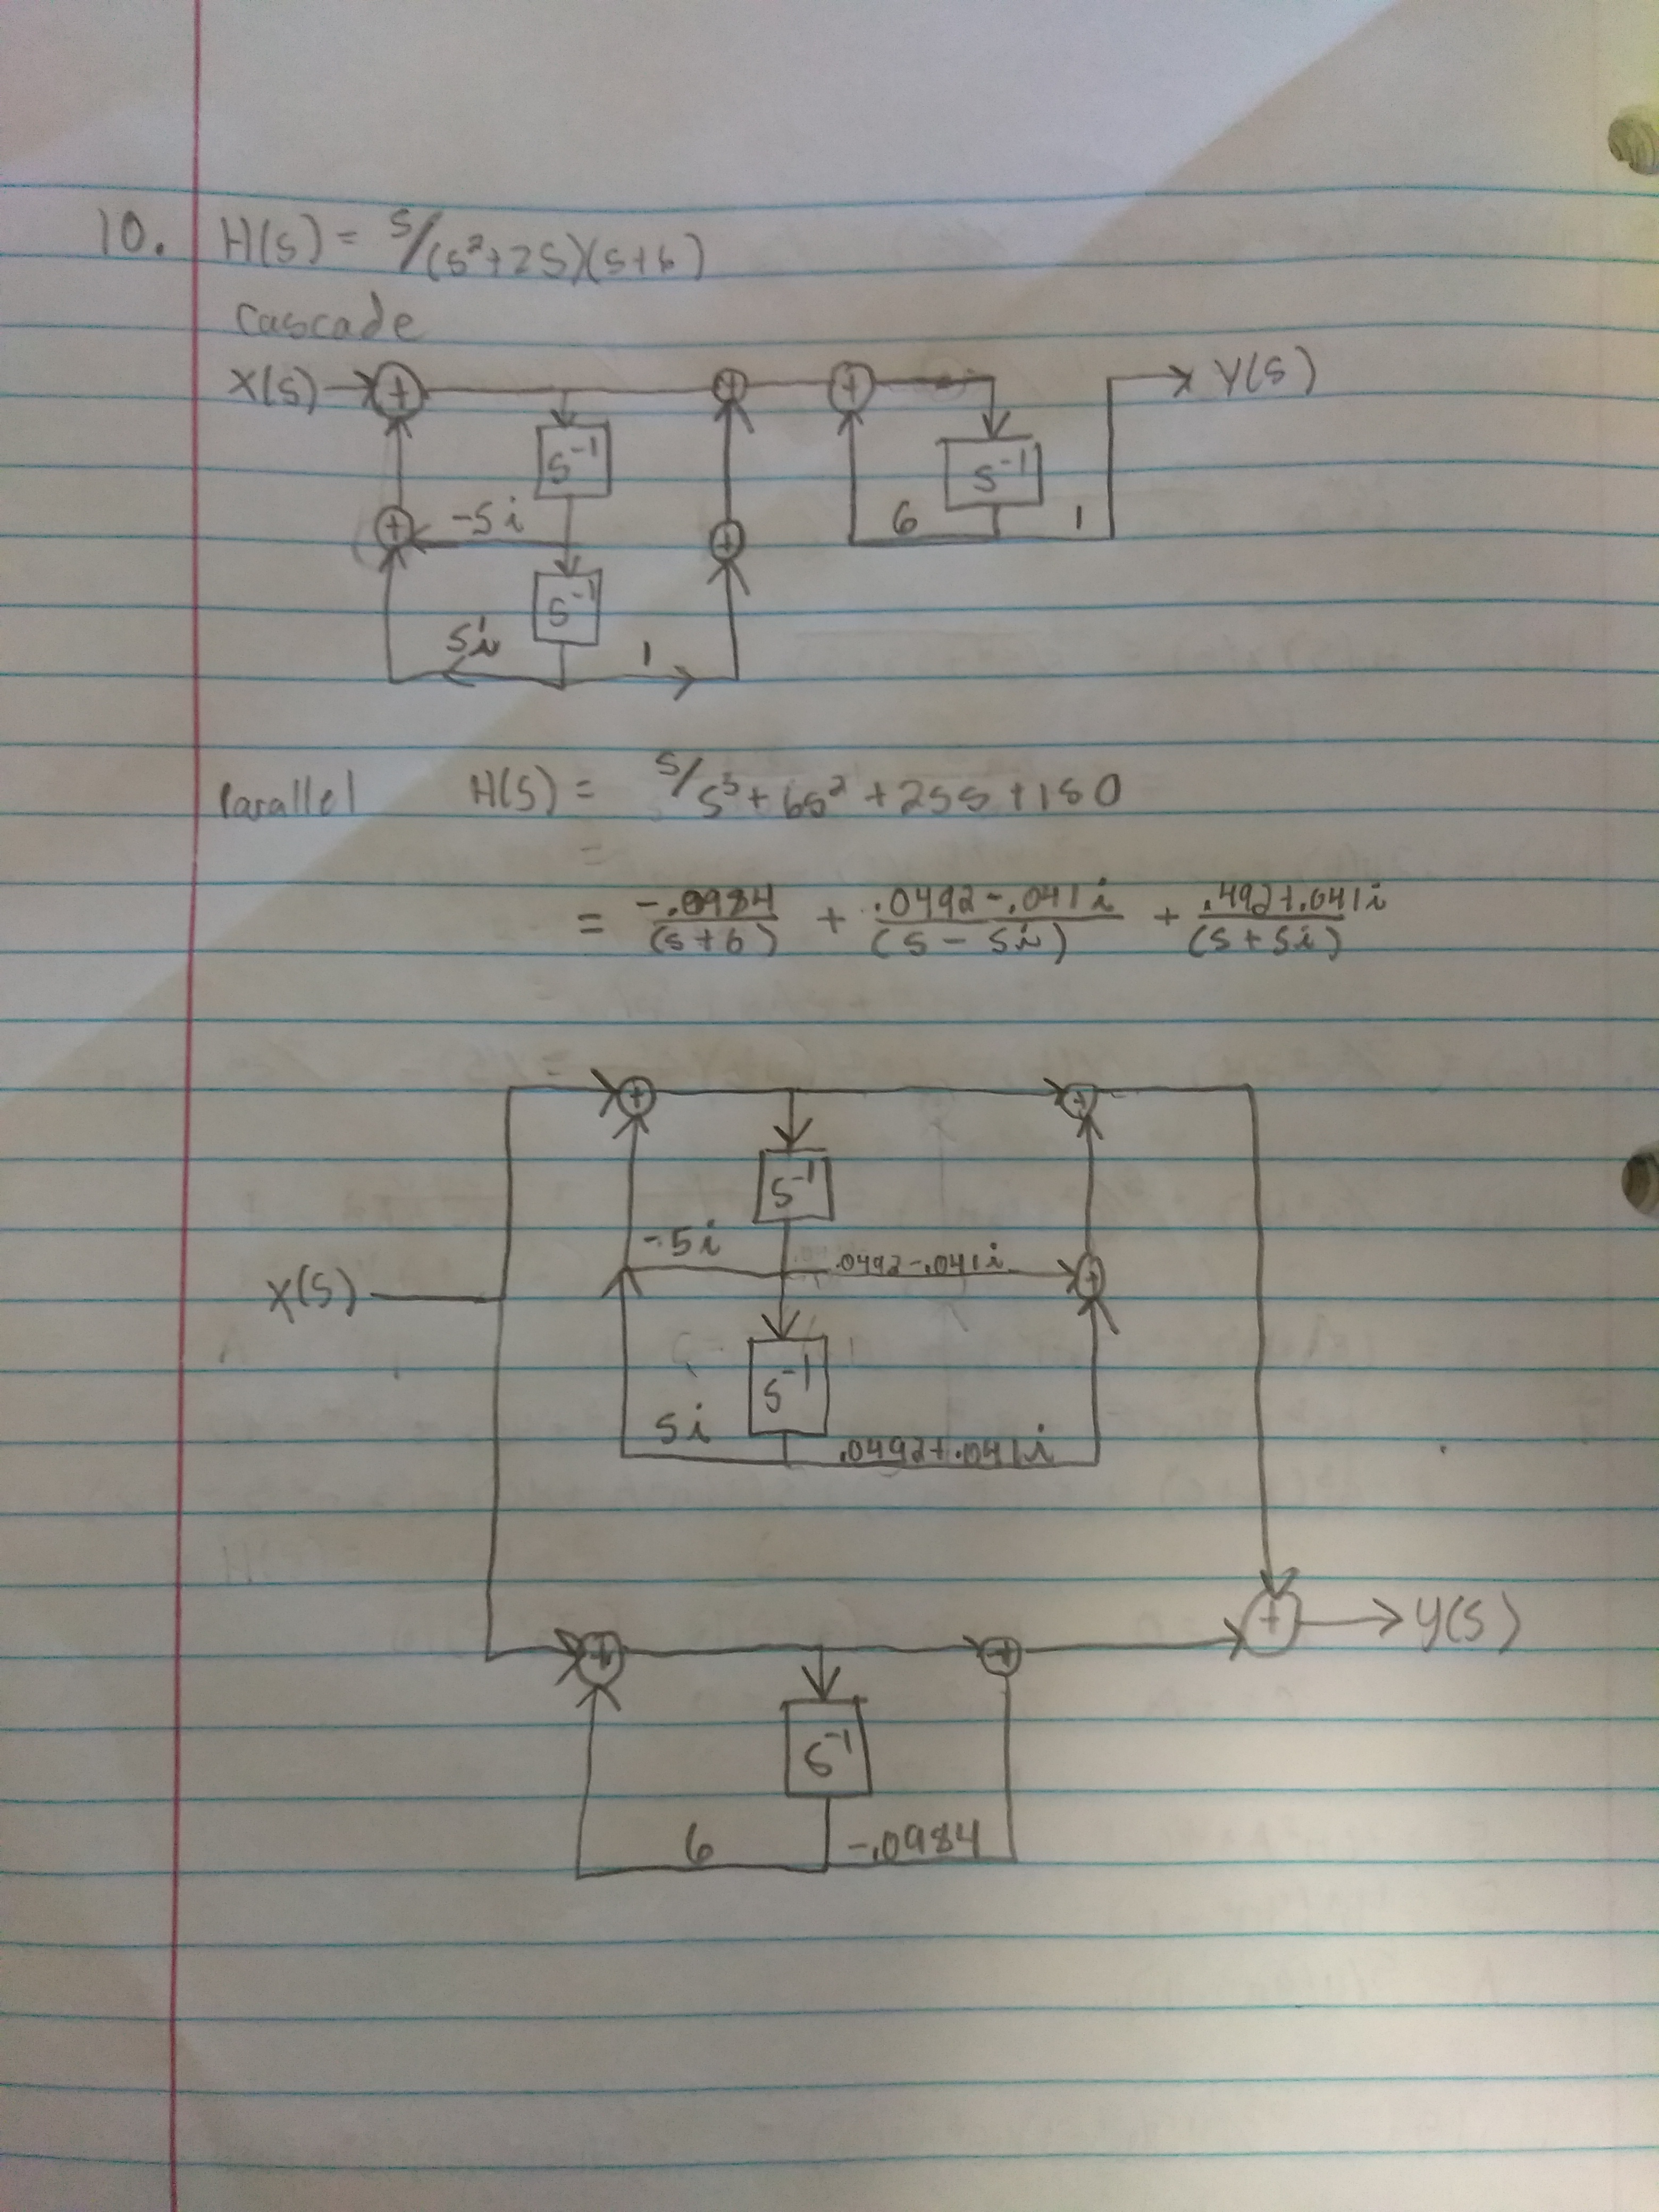 10. H(s) = s/(s²+25)(s+6)
Cascade
X(s) + + + Y(s)
s⁻¹ s⁻¹
+ -5i + 6 1
s⁻¹
5i 1
Parallel H(s) = s/s³+6s²+25s+150
=
= -.0984/(s+6) + .0492-.041i/(s-5i) + .492+.041i/(s+5i)
+ +
s⁻¹
-5i .0492-.041i +
X(s)
s⁻¹
5i .0492+.041i
+ + + y(s)
s⁻¹
6 -.0984